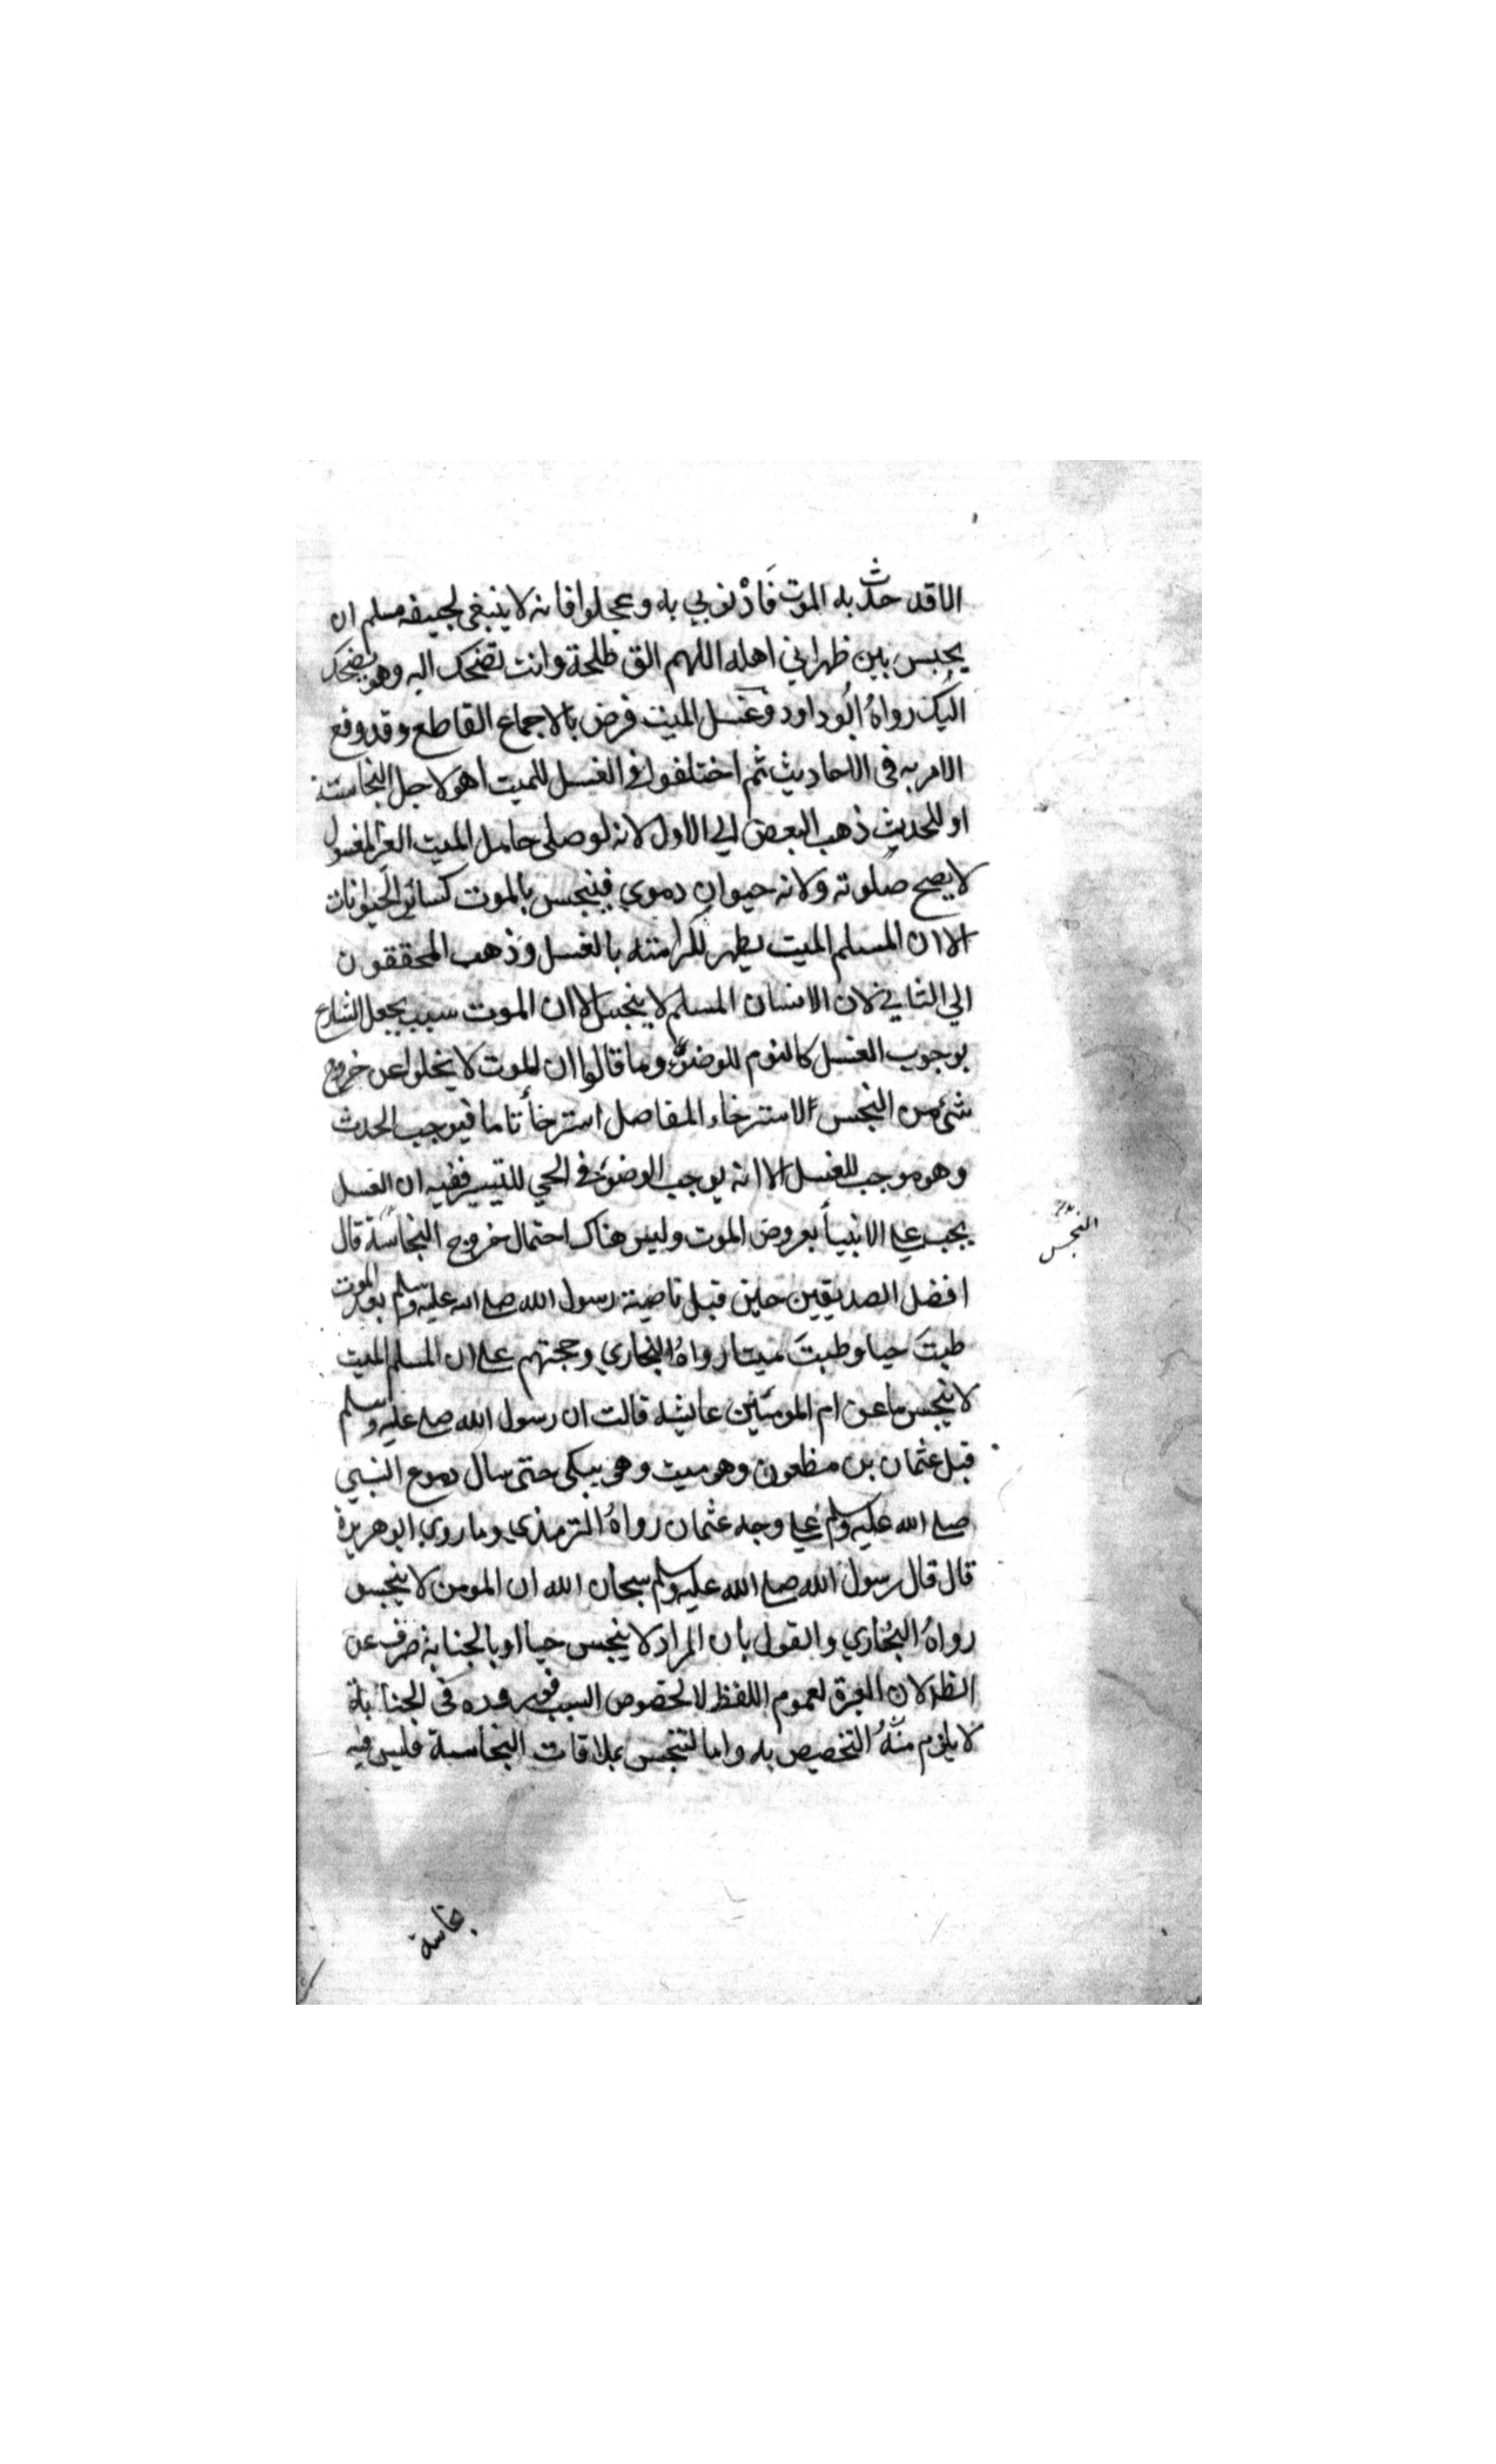 الا قد حدث به الموت فاذنوبي به وعجلوا فانه لا ينبغي لجيفه مسلم ان
يحبس بين ظهراني اهله اللهم الق طلحة وانت تضحك اليه وهو يضحك
اليك رواه ابوداود وغسل الميت فرض بالاجماع القاطع وقد وقع
الامر به فى الاحاديث ثم اختلفوا في الغسل للميت اهو لاجل النجاسته
او للحديث ذهب البعض الي الاول لانه لو صلى حامل الميت الغير المغسول
لا يصح صلوته ولانه حيوان دموي فينجس بالموت كسائر الحيوانات
الا ان المسلم الميت يطهر لكرامته بالغسل وذهب المحققون
الي الثاني لان الانسان المسلم لا ينجس الا ان الموت سبب بجعل الشارع
بوجوب الغسل كالنوم للوضوء وما قالوا ان الموت لا يخلوا عن خروج
شئ من النجس لاسترخاء المفاصل استرخأ تاما فيوجب الحدث
وهو موجب للغسل الا انه يوجب الوضوء في الحي للتيسير ففيه ان الغسل
يجب علي الانبيأ بعروض الموت وليس هناك احتمال خروج النجاسة قال
افضل الصديقين حين قبل ناصية رسول الله صلي الله عليه وسلم بعد الموت
طبتَ حيا وطبتَ ميتا رواه البخاري وحجتهم علي ان المسلم الميت
لا ينجس ما عن ام المومنين عايشه قالت ان رسول الله صلي عليه وسلم
قبل عثمان بن مظعون وهو ميت وهو يبكى حتى سال دموع النبي
صلي الله عليه وسلم علي وجه عثمان رواه الترمذي وما روي ابو هريرة
قال قال رسول الله صلي الله عليه وسلم سبحان الله ان المومن لا ينجس
رواه البخاري والقول بان المراد لا ينجس حيا او بالجنابة صرف عن
الظ لان العبرة لعموم اللفظ لا لخصوص السبب فوروده في الجنابة
لا يلزم منه التخصيص به واما لتنجس بملاقات النجاسة فليس فيه
النجس
نجاسة